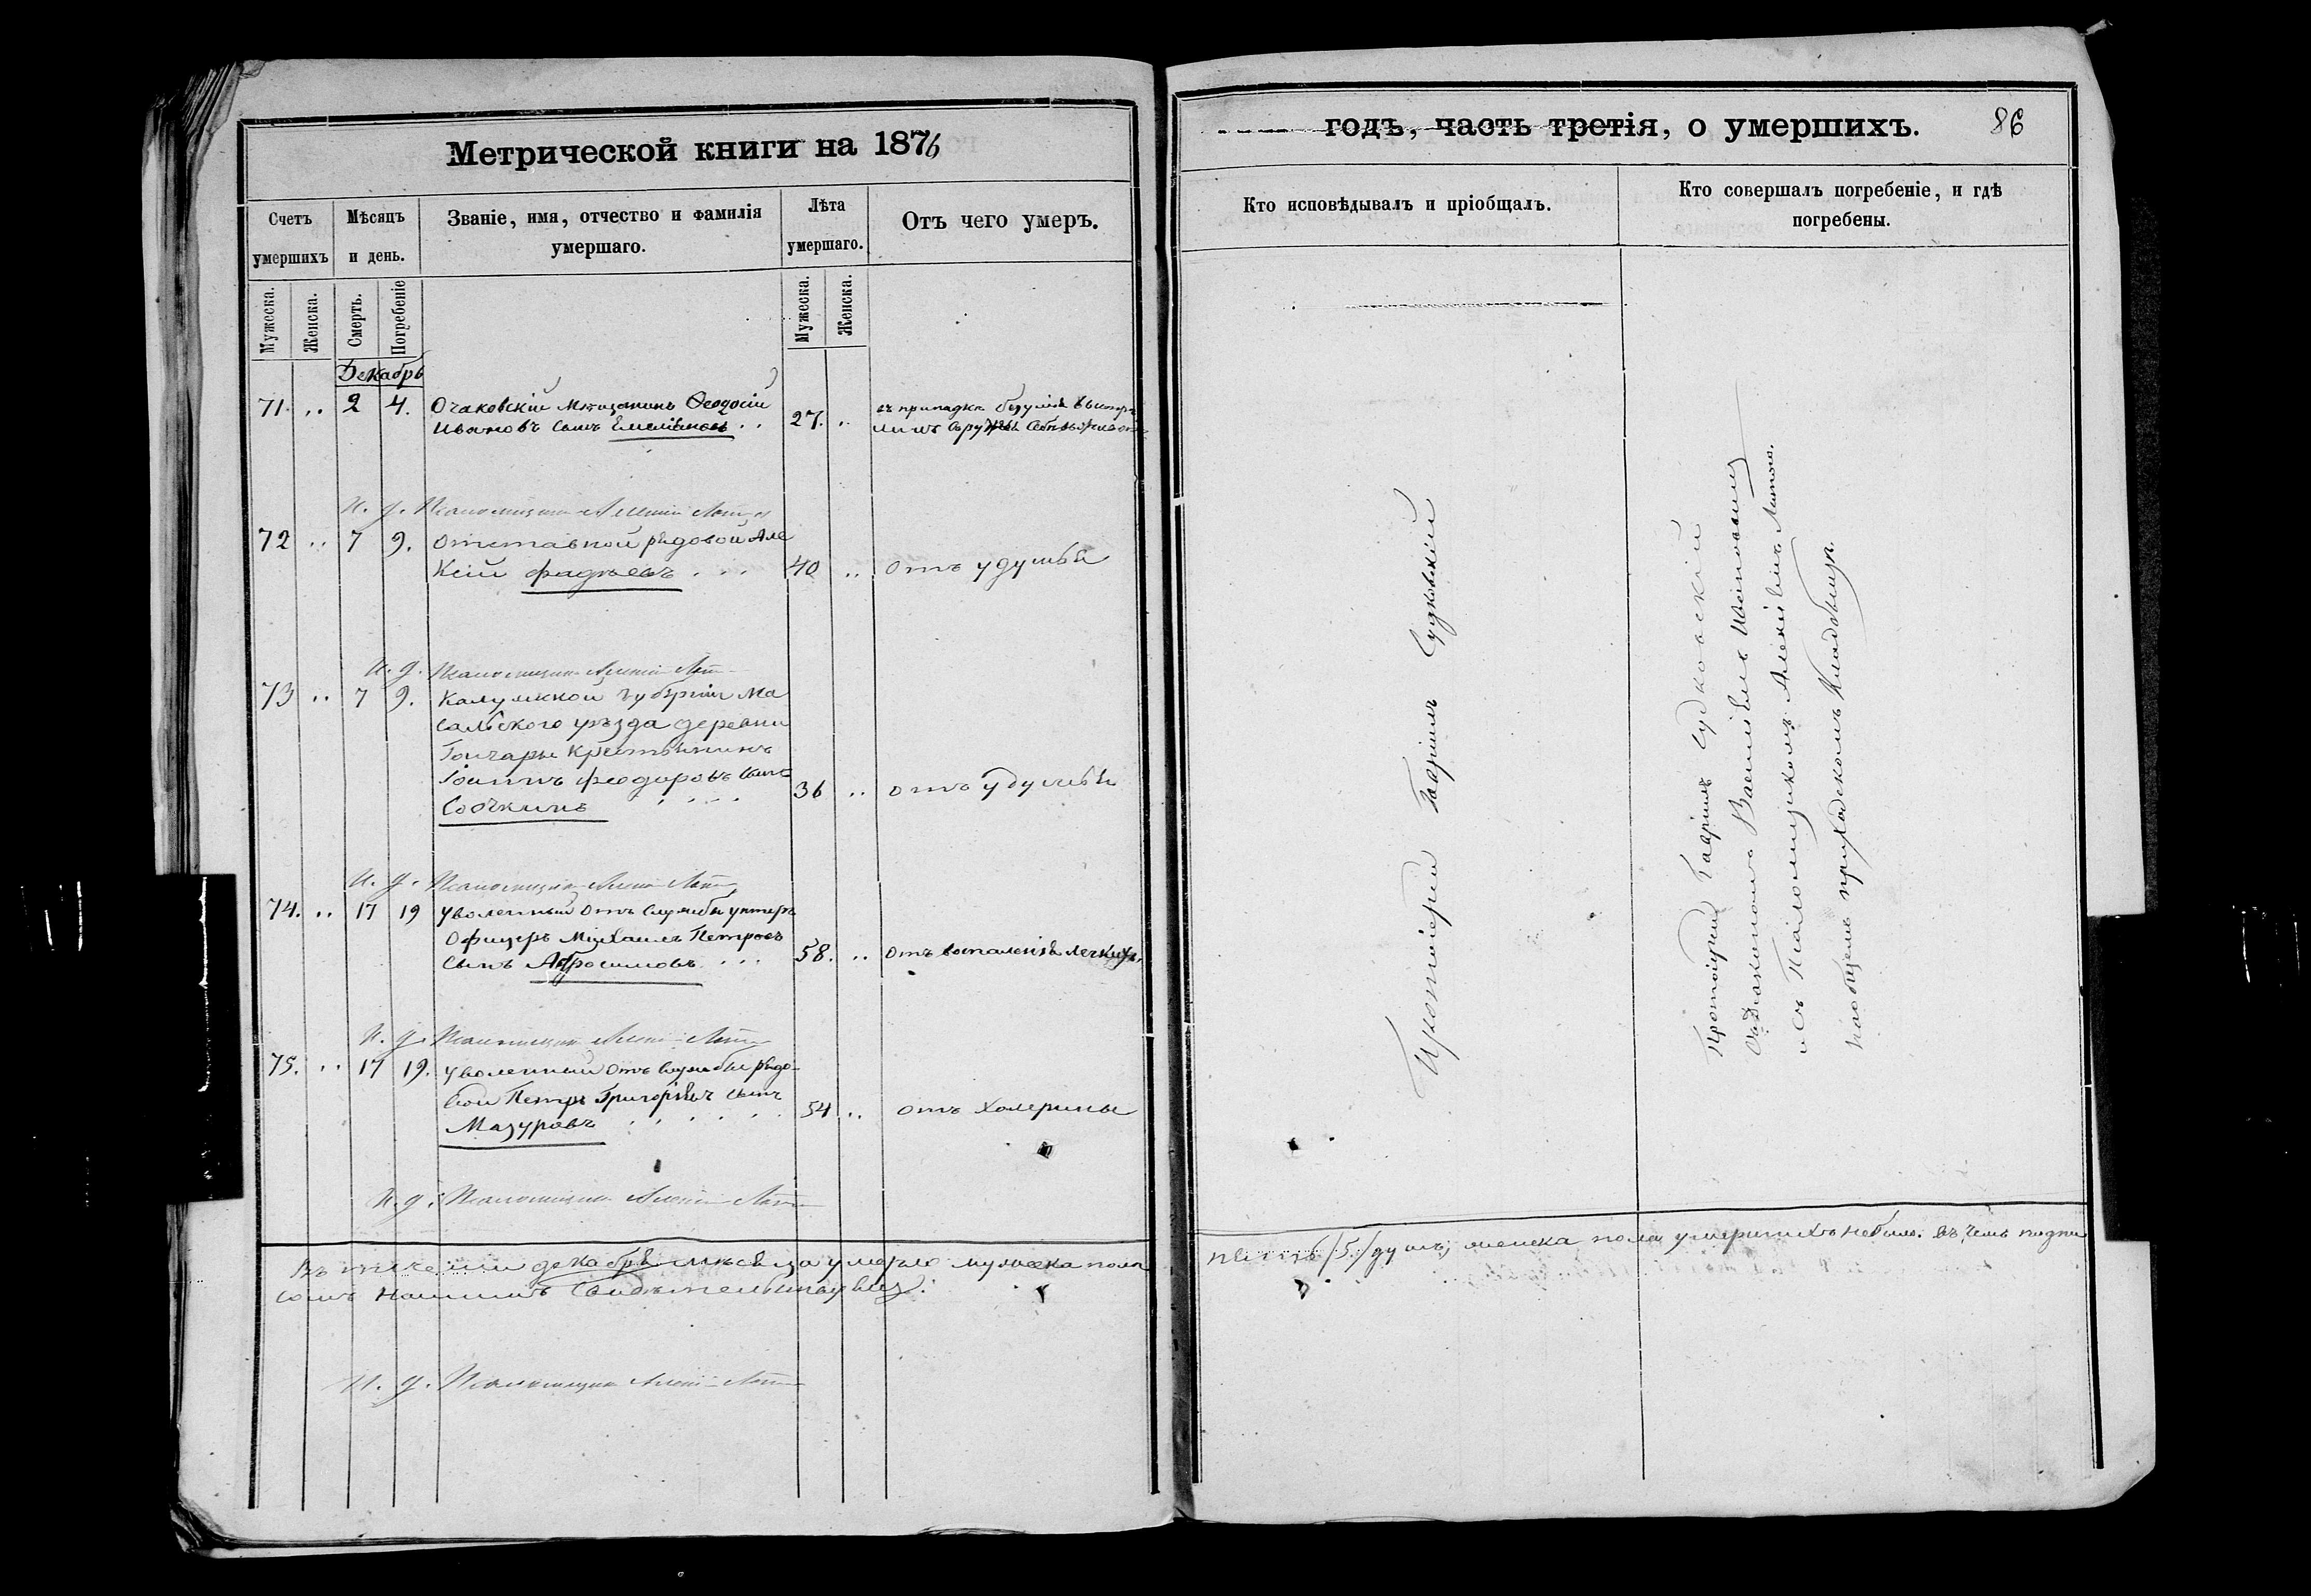 Метрической книги на 1876
Счетъ умершихъ
Мѣсяцъ и день.
Званіе, имя, отчество и фамилія умершаго.
Лѣта умершаго.
Отъ чего умеръ.
Мужеска.
Женска.
Смерть.
Погребеніе
Мужеска.
Женска.
Декабрь
71. .. 2 4. Очаковскій мѣщанинъ Ѳеодосій
Ивановъ сынъ Емеліяновъ .. 27. ..
въ припадкѣ безумія
И. д. Псаломщика Алексій
72 .. 7 9. Отставной рядовой Але
ксій Фадѣевъ . . . 40 .. отъ удушья
И. д. Псаломщика Алексій
73 .. 7 9. Калужской губерніи Ма
сальского уѣзда деревни
Гончары крестьянинъ
Іоаннъ Феодоровъ сынъ
Сочкинъ . . . . 36 .. отъ удушья
И. д. Псаломщика Алексій
74. .. 17 19 уволенный отъ службы унтеръ
Офицеръ Михаилъ Петровъ
сынъ Абросимовъ . . . 58. .. отъ воспаленія легкихъ.
И. д. Псаломщика Алексій
75. .. 17 19. уволенный отъ службы рядо-
вой Петръ Григорьевъ сынъ
Мазуровъ . . . . . 54 .. отъ холерины
И. д. Псаломщика Алексій
Въ теченіи декабря мѣсяца умерло мужеска пола
сомъ нашимъ свидѣтельствуемъ.
И. д. Псаломщика Алексій
годъ, часть третія, о умершихъ.
86
Кто исповѣдывалъ и пріобщалъ.
Кто совершалъ погребеніе, и гдѣ
погребены.
Протоіерей Гавріилъ Судковскій
Протоіерей Гавріилъ Судковскій
съ Діакономъ Василіемъ
и съ Псаломщикомъ Алексіемъ
на общемъ приходскомъ кладбищѣ.
пять /5/ душъ, женска пола умершихъ небыло. Въ чемъ подпи